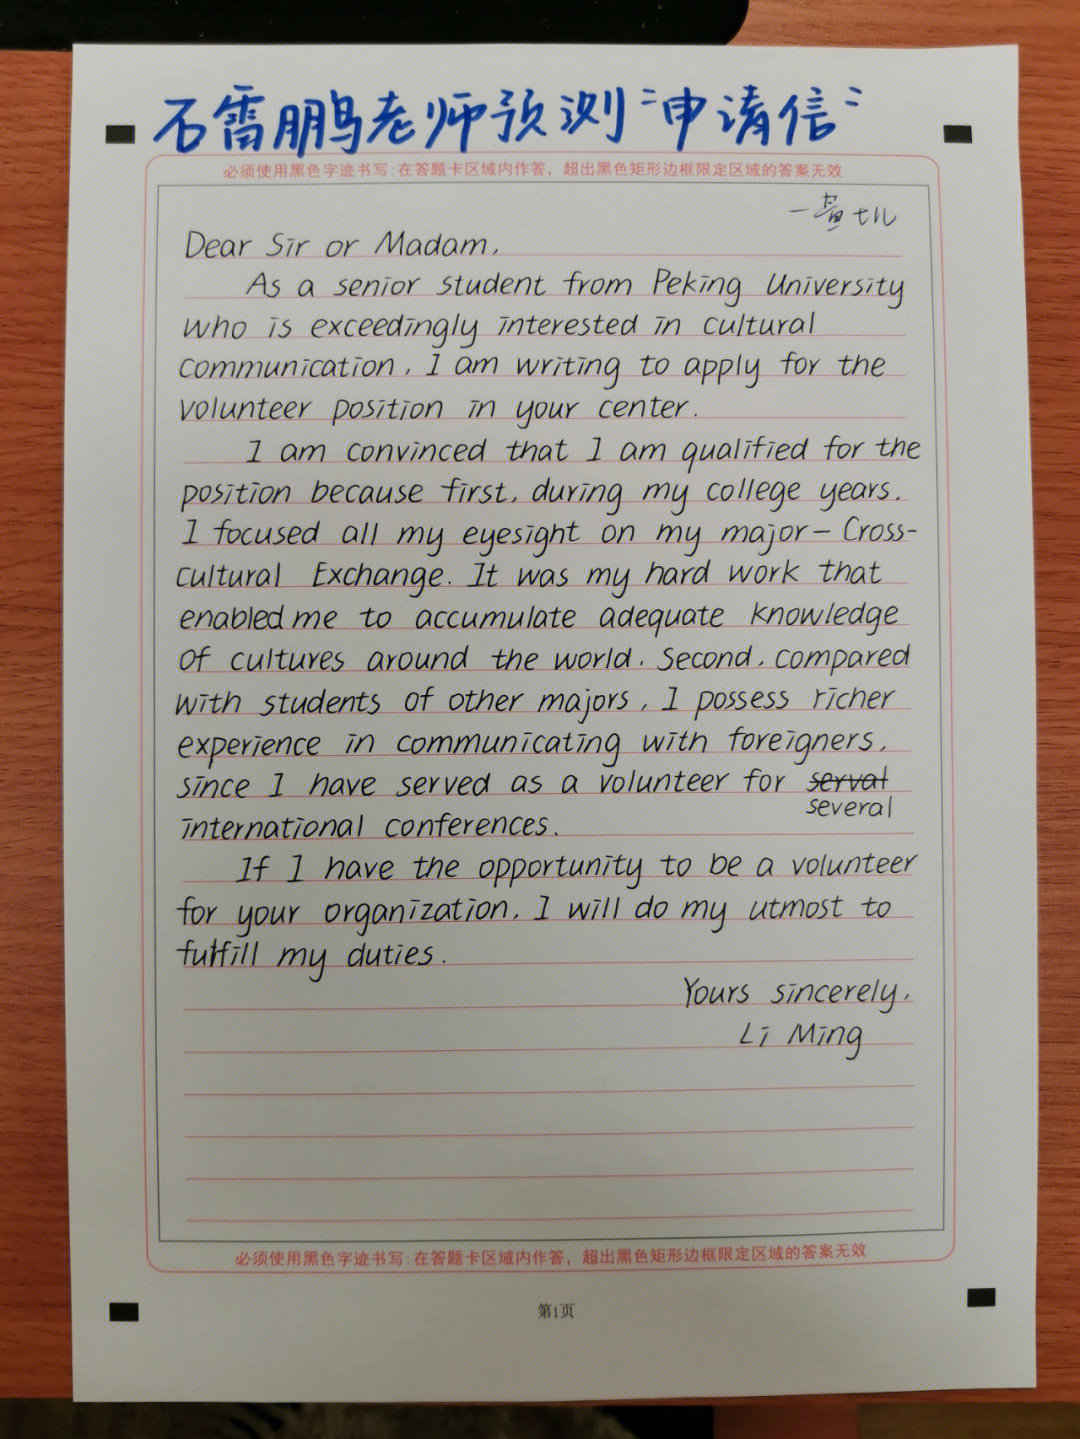 石雷鹏老师预测“申请信”
必须使用黑色字迹书写:在答题卡区域内作答,超出黑色矩形边框限定区域的答案无效
一
Dear Sir or Madam,
As a senior student from Peking University
who is exceedingly interested in cultural
communication, I am writing to apply for the
volunteer position in your center.
I am convinced that I am qualified for the
position because first, during my college years,
I focused all my eyesight on my major — Cross-
cultural Exchange. It was my hard work that
enabled me to accumulate adequate knowledge
of cultures around the world. Second, compared
with students of other majors, I possess richer
experience in communicating with foreigners,
since I have served as a volunteer for serval
several
international conferences.
If I have the opportunity to be a volunteer
for your organization, I will do my utmost to
fulfill my duties.
Yours sincerely,
Li Ming
必须使用黑色字迹书写:在答题卡区域内作答,超出黑色矩形边框限定区域的答案无效
第1页